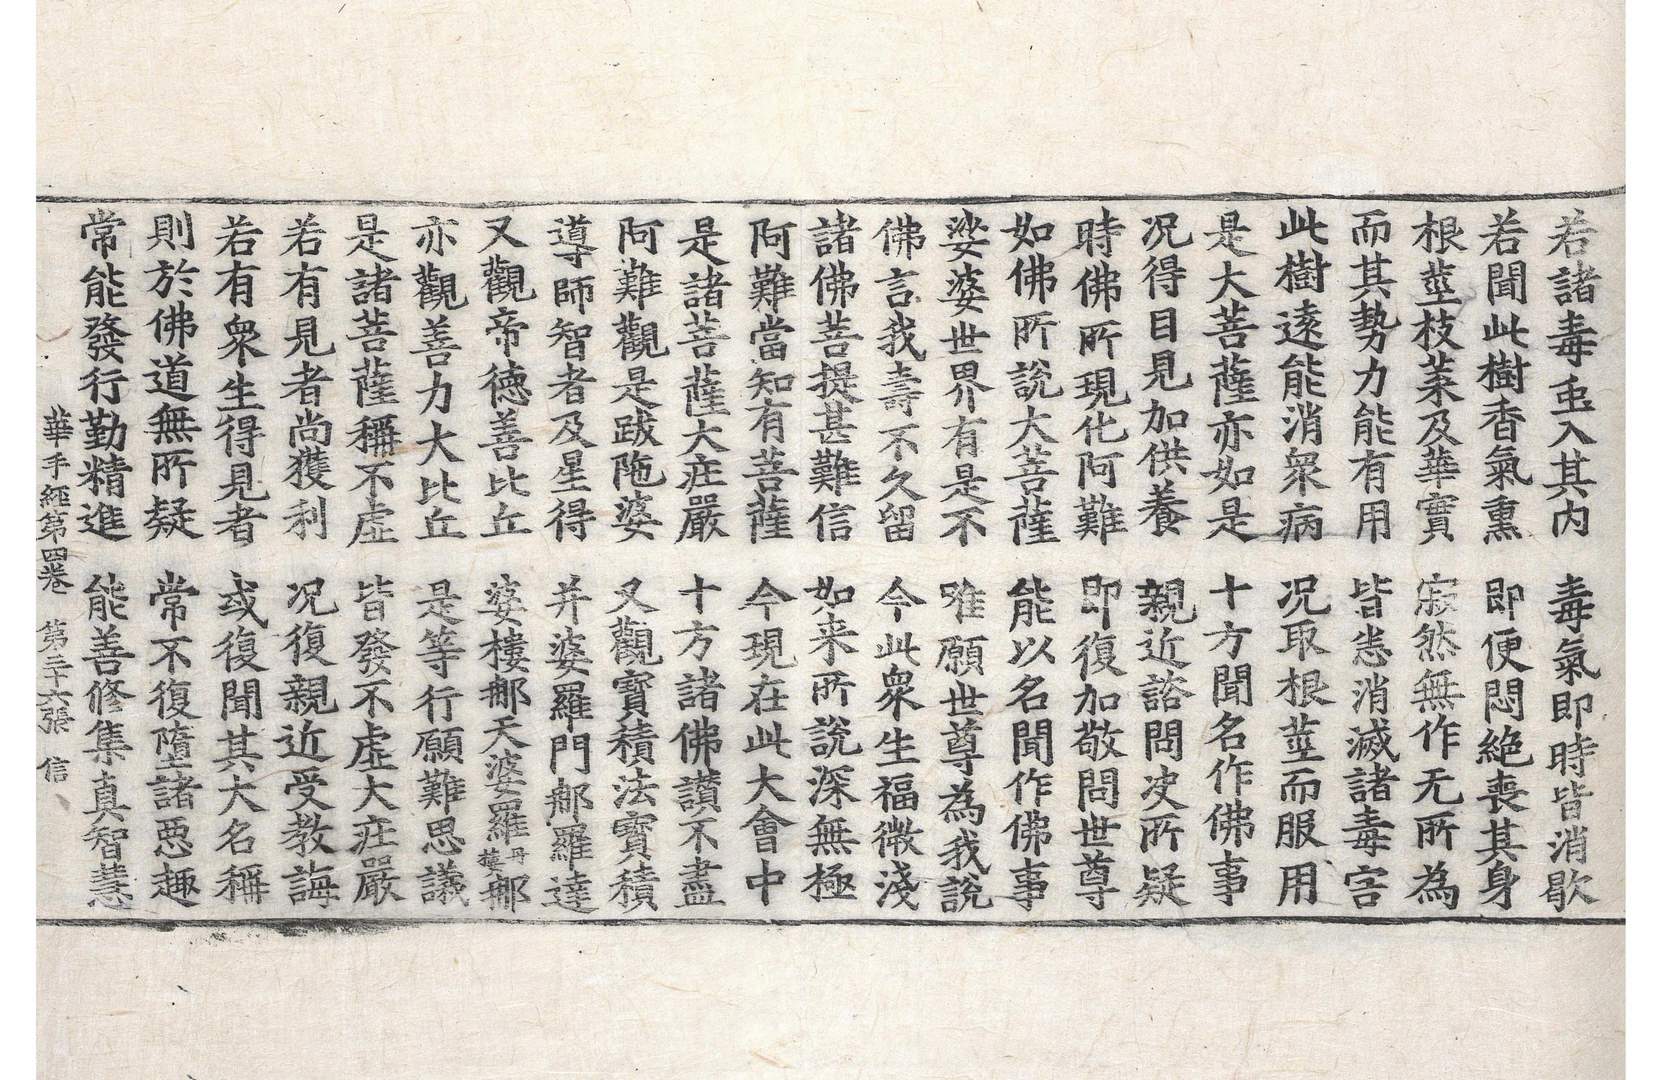 若諸毒䖝入其内　毒氣即時皆消歇
若聞此樹香氣熏　即便悶絶喪其身
根莖枝葉及華實　寂然無作无所為
而其勢力能有用　皆悉消滅諸毒害
此樹逺能消衆病　况取根莖而服用
是大菩薩亦如是　十方聞名作佛事
况得目見加供養　親近諮問决所疑
時佛所現化阿難　即復加敬問世尊
如佛所說大菩薩　能以名聞作佛事
娑婆世界有是不　唯願世尊為我說
佛言我壽不久留　今此衆生福微淺
諸佛菩提甚難信　如来所說深無極
阿難當知有菩薩　今現在此大會中
是諸菩薩大疘嚴　十方諸佛讃不盡
阿難觀是跋陁婆　又觀寶積法寶積
導師智者及星得　并婆羅門郍羅達
又觀帝德善比丘　婆樓郍天婆羅丹樓郍
亦觀善力大比丘　是等行願難思議
是諸菩薩稱不虛　皆發不虛大疘嚴
若有見者尚獲利　况復親近受教誨
若有衆生得見者　或復聞其大名稱
則於佛道無所疑　常不復墮諸惡趣
常能發行勤精進　能善修集真智慧
華手經第四卷　第三十六張　信